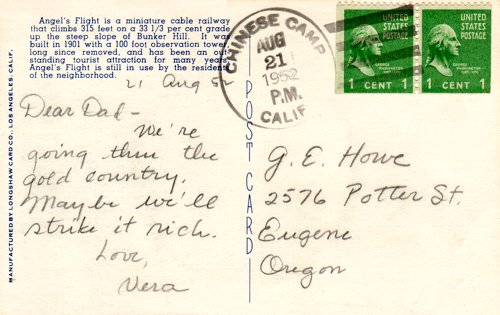 Angel's Flight is a miniature cable railway
that climbs 315 feet on a 33 1/3 per cent grade
up the steep slope of Bunker Hill. It was
built in 1901 with a 100 foot observation tower,
long since removed, and has been an out-
standing tourist attraction for many years.
Angel's Flight is still in use by the residents
of the neighborhood.
21 Aug 52
Dear Dad-
We're
going thru the
gold country.
Maybe we'll
strike it rich.
Love,
Vera
MANUFACTURED BY LONGSHAW CARD CO., LOS ANGELES, CALIF.
POST CARD
CHINESE CAMP
AUG
21
1952
P.M.
CALIF
UNITED
STATES
POSTAGE
GEORGE
WASHINGTON
1 CENT 1
UNITED
STATES
POSTAGE
GEORGE
WASHINGTON
1 CENT 1
G. E. Howe
2576 Potter St.
Eugene
Oregon